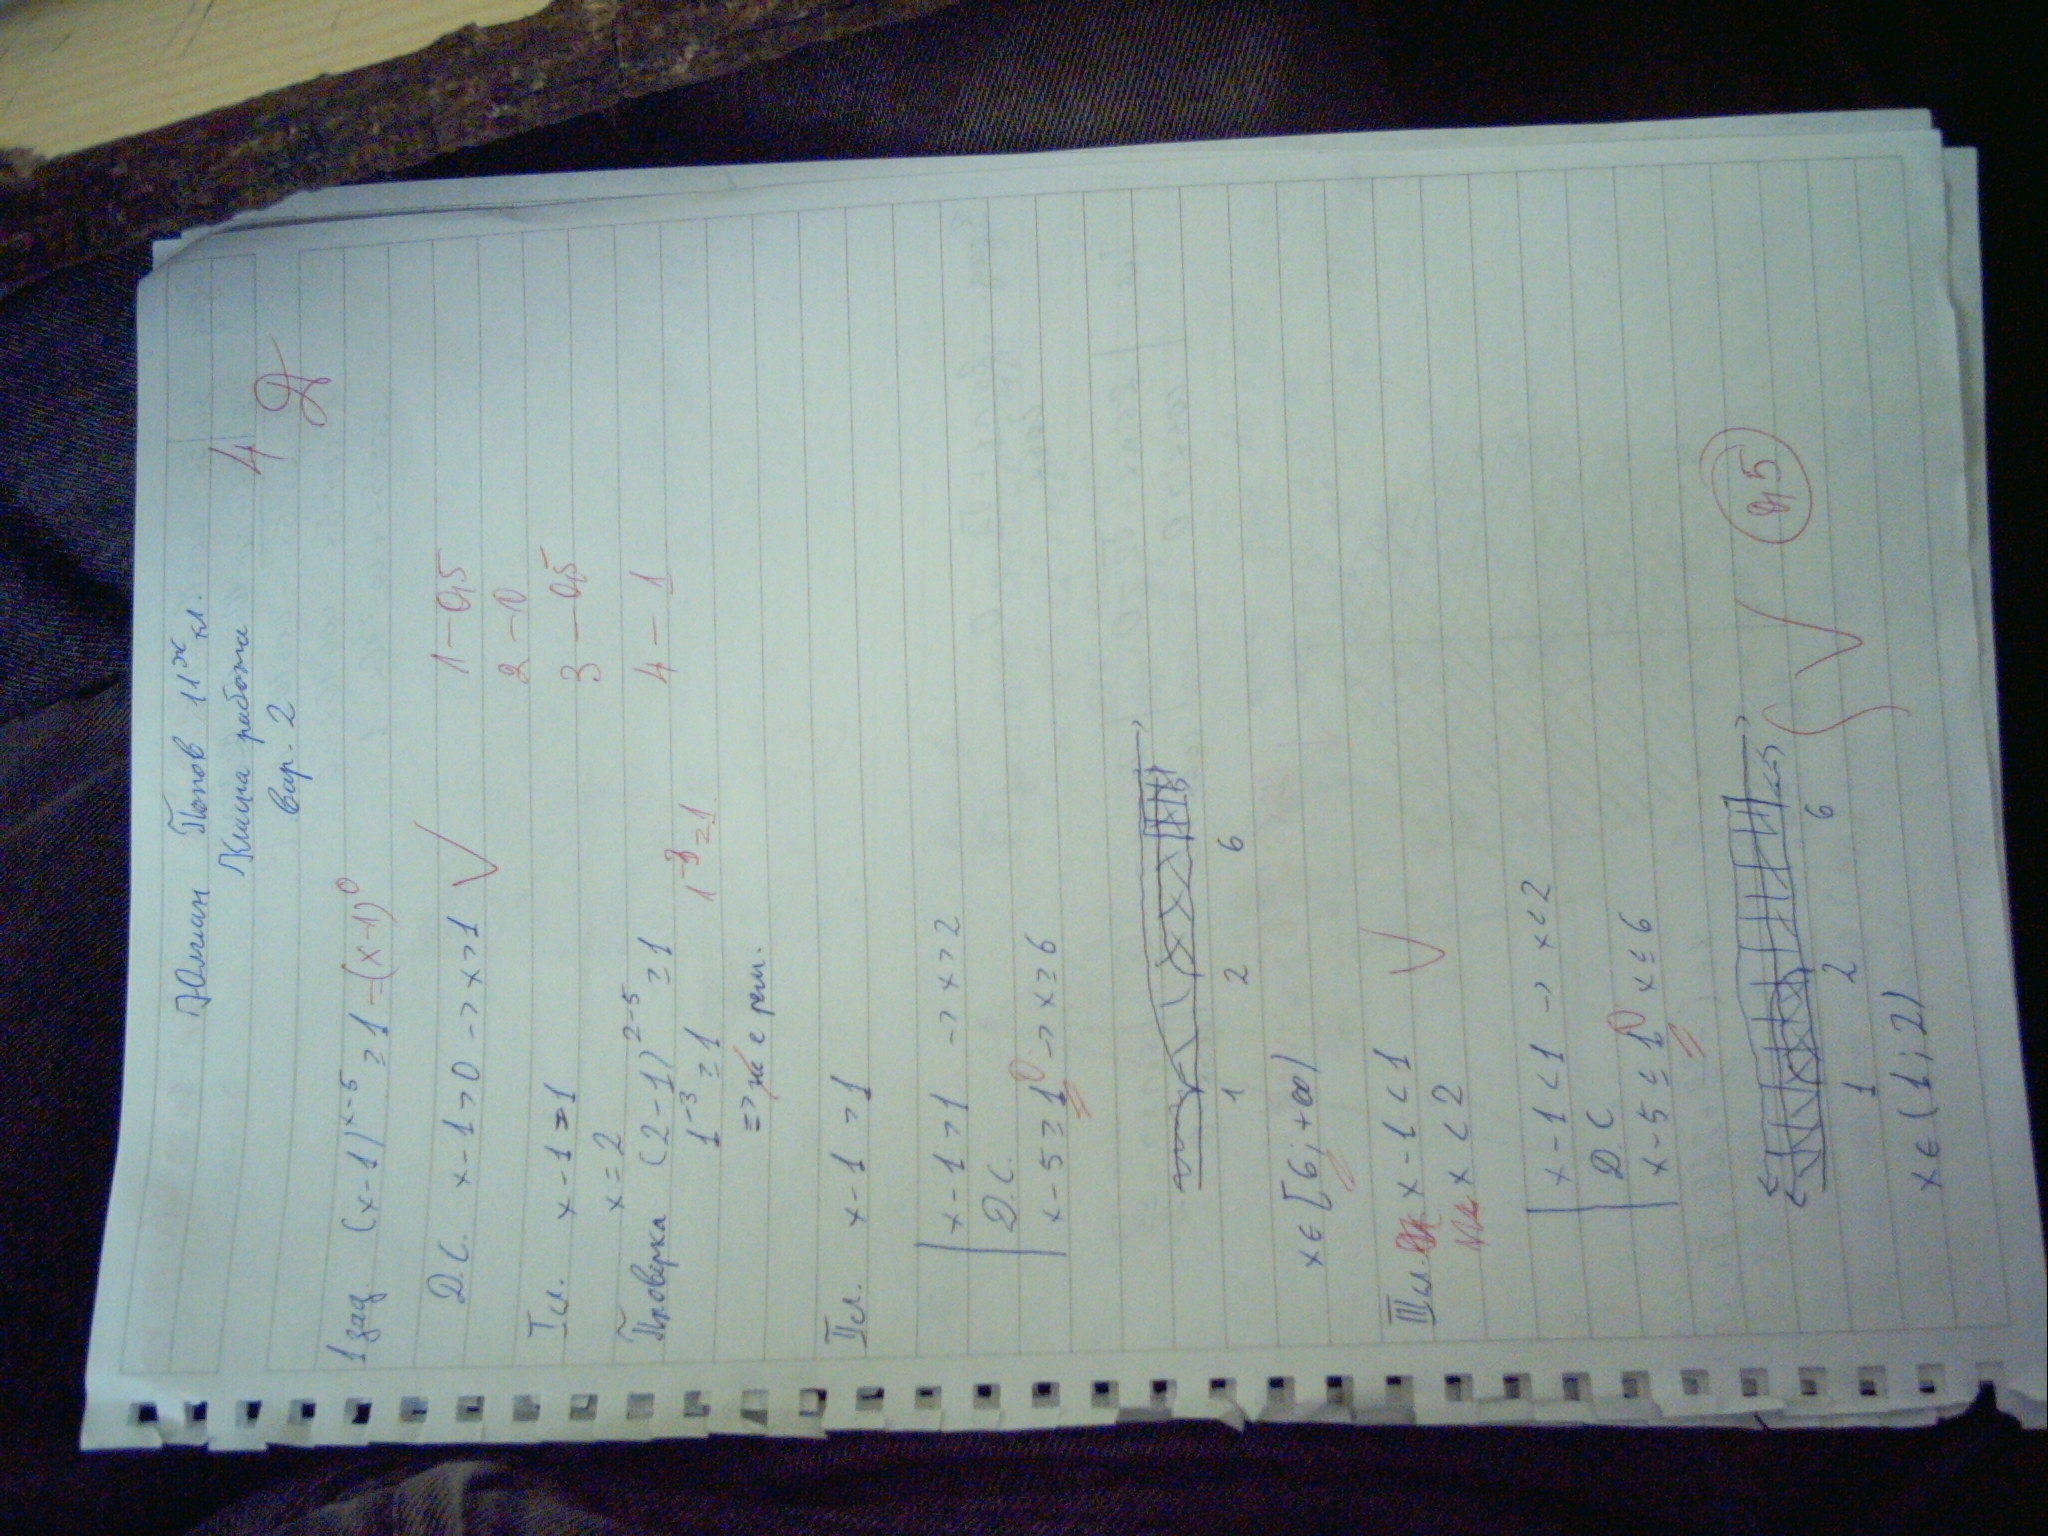 Юлиан Попов 11ж кл.
Класна работа
вар. 2
4
1 зад. (x-1)^x-5 ≥ 1 =(x-1)^0
Д.С. x-1>0 -> x>1
1-0,5
2-0
I сл. x-1=1
3-0,5
x=2
4-1
Проверка (2-1)^2-5 ≥1
1^-3 ≥ 1
1^-3 =1
=> не е реш.
II сл. x-1>1
x-1>1 -> x>2
Д.С.
x-5≥1 0 -> x≥6
1 2 6
x∈[6;+∞)
III сл. x-1<1
x<2
x-1<1 -> x<2
Д.С
x-5≤1 0 x≤6
1 2 6
x∈(1;2)
0,5